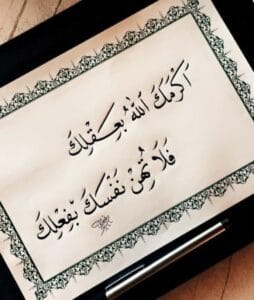 اَكْرَمَكَ اللهُ بِعَقْلِكَ
فَلَا تُهِنْ نَفْسَكَ بِفِعْلِكَ